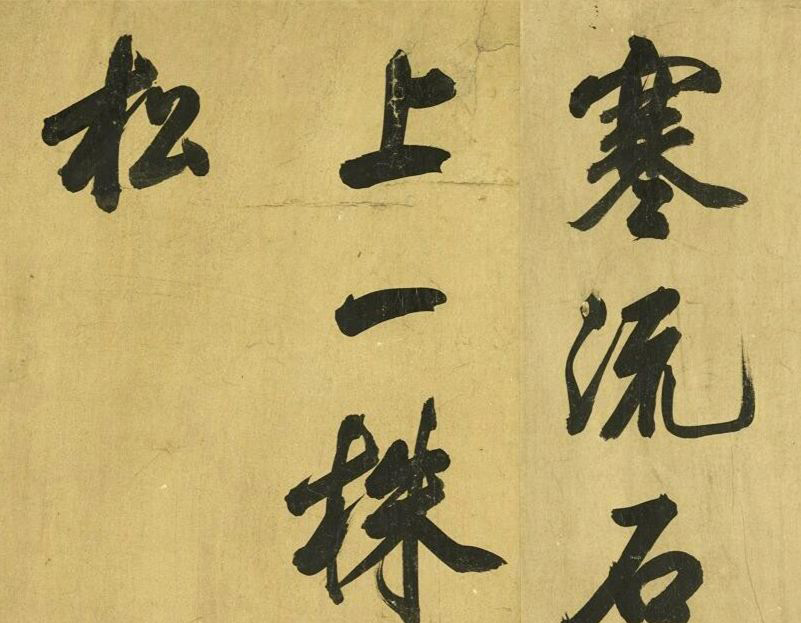 寒流石
上一株
松